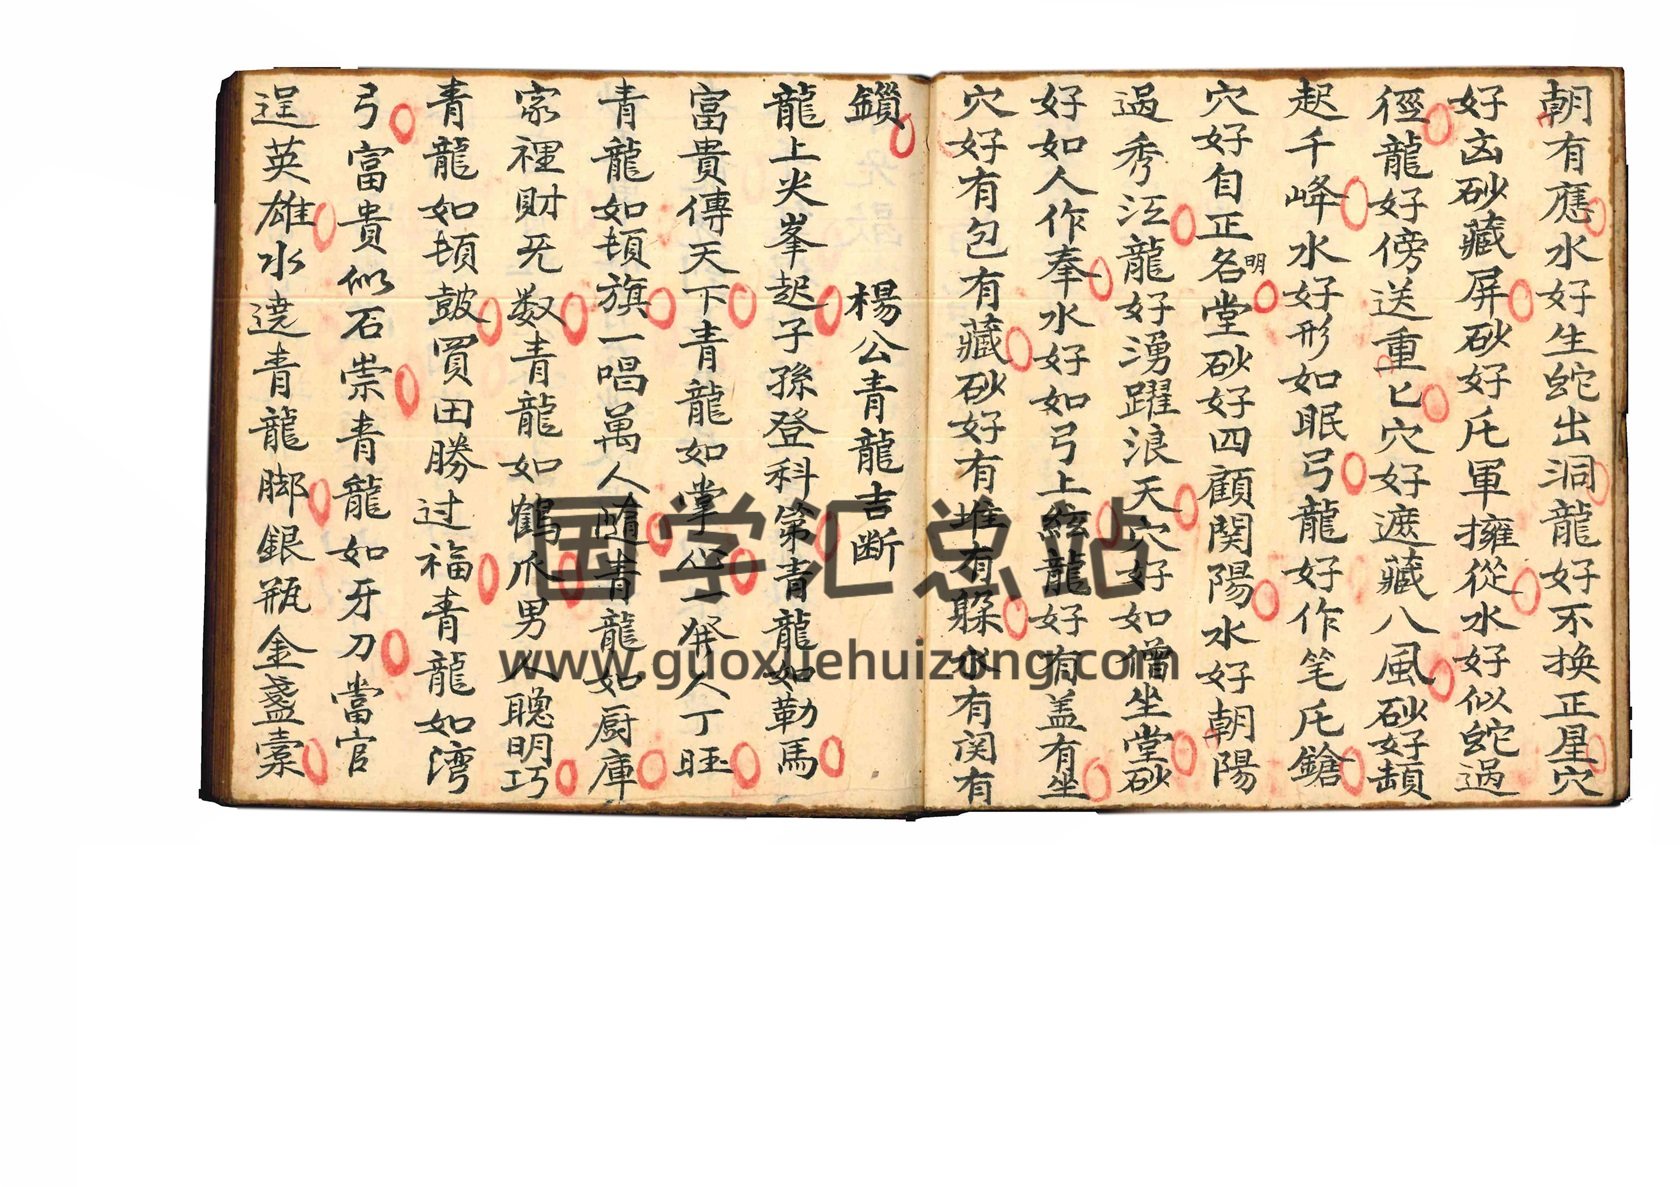 朝有應水好生蛇出洞龍好不换正星穴
好玄砂藏屏砂好乇軍擁從水好似蛇過
徑龍好傍送重匕穴好遮藏八風砂好頡
起千峰水好形如眠弓龍好作笔乇鎗
穴好自正名明堂砂好四顧関陽水好朝陽
過秀江龍好湧躍浪天穴好如僧坐堂砂
好如人作奉水好如弓上絃龍好有盖有坐
穴好有包有藏砂好有堆有躲水有関有
鎖 楊公青龍吉断
龍上尖峯起子孫登科第青龍如勒馬
富貴傳天下青龍如掌心一発人丁旺
青龍如頓旗一唱萬人隨青龍如厨庫
家裡財无数青龍如鶴爪男人聰明巧
青龍如頓鼓買田勝过福青龍如湾
弓富貴似石崇青龍如牙刀當官
逞英雄水遶青龍脚銀瓶金盞
国学汇总站
www.guoxuehuizong.com